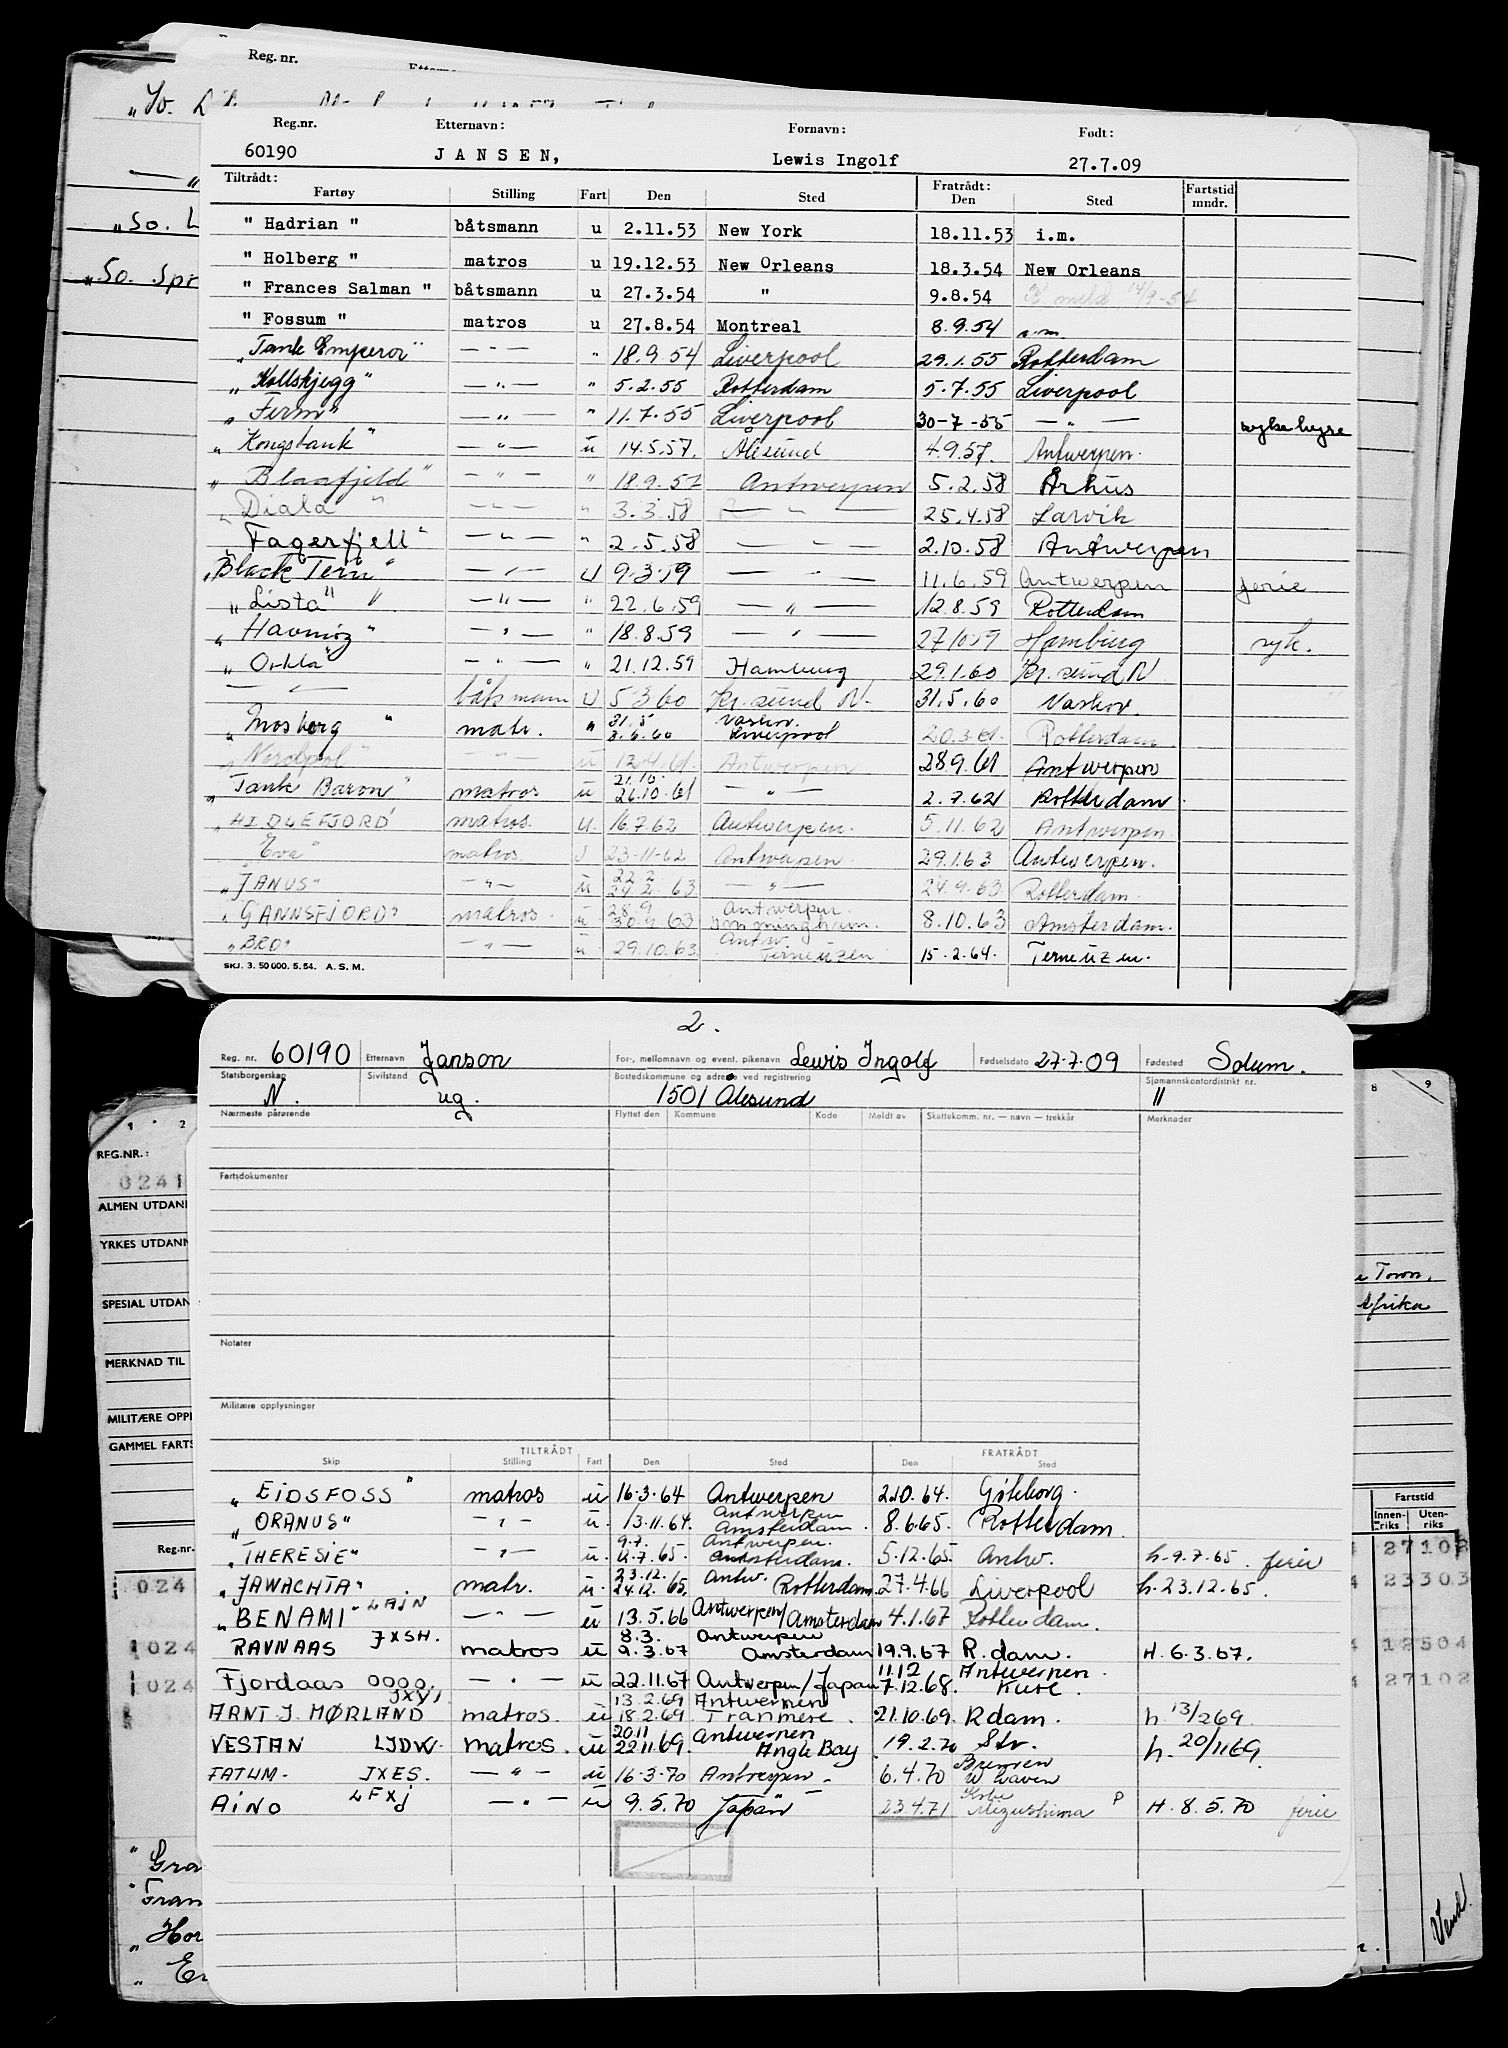 Reg. nr.
Reg.nr. Etternavn: Fornavn: Født:
60190 JANSEN, Lewis Ingolf 27.7.09
Tiltrådt: Fratrådt:
Fartøy Stilling Fart Den Sted Den Sted Fartstid mndr.
" Hadrian " båtsmann u 2.11.53 New York 18.11.53 i.m.
" Holberg " matros u 19.12.53 New Orleans 18.3.54 New Orleans
" Frances Salman " båtsmann u 27.3.54 " 9.8.54 meld 14/9-54
" Fossum " matros u 27.8.54 Montreal 8.9.54
"Tank Emperor" — " — " 18.9.54 Liverpool 29.1.55 Rotterdam
"Kollskjegg" — " — " 5.2.55 Rotterdam 5.7.55 Liverpool
"Ferm" — " — " 11.7.55 Liverpool 30-7-55 — " — sykehyre
"Kongsbank" — " — u 14.5.57. Ålesund 4.9.57. Antwerpen.
"Blaafjeld" — " — " 18.9.57 Antwerpen 5.2.58 Århus
"Diala" — " — " 3.3.58 — " — 25.4.58 Larvik
"Fagerfjell" — " — " 2.5.58 — " — 2.10.58 Antwerpen
"Black Tern" — " — U 9.3.59 — " — 11.6.59 Antwerpen ferie
"Lista" — " — " 22.6.59 — " — 12.8.59 Rotterdam
"Havmøy" — " — " 18.8.59 — " — 27/10.59 Hamburg syk.
"Orkla" — " — " 21.12.59 Hamburg 29.1.60 Kr.sund N
— " — båtsmann U 5.3.60 Kr.sund N. 31.5.60
"Mosberg" matr. " 31.5 3.6.60 Liverpool 20.3.61. Rotterdam
"Nordpol" — " — u 12.4.61. Antwerpen 28.9.61 Antwerpen
"Tank Baron" matros u 21.10. 26.10.61 — " — 2.7.62 Rotterdam.
"HIDLEFJORD" matros. u. 16.7.62 Antwerpen. 5.11.62 Antwerpen.
"Eva" matros. 23-11-62 Antwerpen. 29.1.63 Antwerpen.
"JANUS" — " — u 22.2 24.2.63 — " — 24.9.63. Rotterdam.
"GANNSFJORD" matros. u. 28.9 30.9.63 Antwerpen. Immingham. 8.10.63 Amsterdam.
"BRO" — " — u. 29.10.63. Antw. Terneuzen 15.2.64. Terneuzen.
SKJ. 3. 50 000. 5.54. A. S. M.
2.
Reg. nr. 60190 Etternavn Janson For-, mellomnavn og event. pikenavn Lewis Ingolf Fødselsdato 27-7-09 Fødested Solum.
Statsborgerskap N. Sivilstand ug. Bostedskommune og adresse ved registrering 1501 Ålesund Sjømannskontordistrikt nr. 11
Nærmeste pårørende Flyttet den Kommune Kode Meldt av Skattekomm. nr. — navn — trekkår Merknader
Fartsdokumenter
Notater
Militære opplysninger
TILTRÅDT FRATRÅDT
Skip Stilling Fart Den Sted Den Sted
"EIDSFOSS" matros u 16.3.64 Antwerpen 2.10.64. Göteborg.
"ORANUS" — " — u. 13.11.64. Antwerpen Amsterdam. 8.6.65. Rotterdam.
"THERESIE" — " — u. 9.7. 12.7.65. Antwerpen. Amsterdam. 5.12.65. Antw. h.9.7.65. ferie
"JAWACHTA" matr. u. 23.12. 24.12.65. Antw. Rotterdam. 27.4.66 Liverpool h.23.12.65.
"BENAMI" LAJN — " — u 13.5.66 Antwerpen/Amsterdam 4.1.67 Rotterdam.
RAVNAAS JXSH. matros u 8.3. 9.3.67 Antwerpen Amsterdam 19.9.67 R.dam. H. 6.3.67.
Fjordaas OOOO. — " — u 22.11.67 Antwerpen/Japan 11.12 7.12.68. Antwerpen. Kure.
AANT J. MØRLAND JXYI matros. u 13.2.69 18.2.69. Antwerpen Tranmere. 21.10.69. Rdam. h. 13/2 69.
VESTAN LJDW. matros. u 20.11 22.11.69. Antwerpen Angle Bay 19.2.70 Stv. h. 20/11 69.
FATUM. JXES. — " — u 16-3-70 Antwerpen. 6.4.70 Bremen W.haven
AINO LFXJ — " — u 9.5.70 Japan 23.4.71 Kobe Mizushima P H. 8.5.70 ferie
REG.NR.:
0241
ALMEN UTDANN
YRKES UTDANN
SPESIAL UTDAN
MERKNAD TIL
MILITÆRE OPPL
GAMMEL FARTS
Reg.nr.
024
024
024
8 9
Town.
Afrika
Fartstid
Innen-riks Uten-riks
27102
23303
12504
27102
Vend!